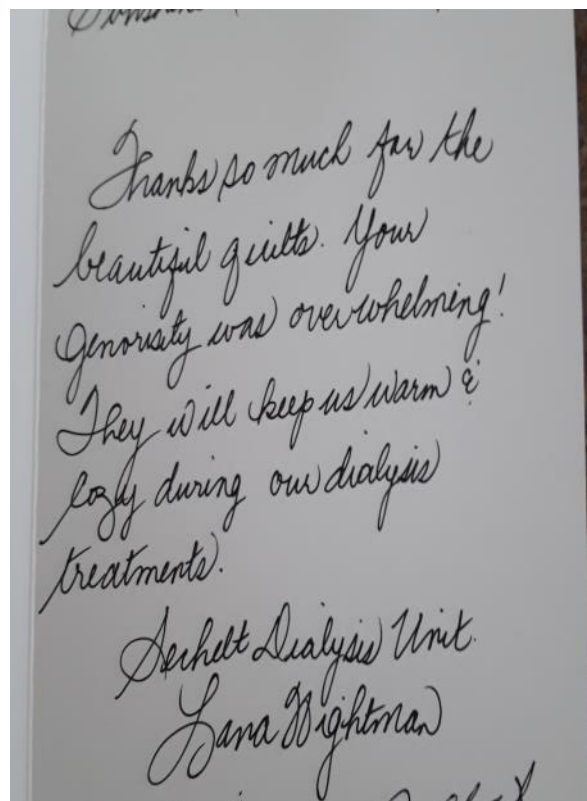 Thanks so much for the
beautiful quilts. Your
genorisity was overwhelming!
They will keep us warm &
cozy during our dialysis
treatments.
Sechelt Dialysis Unit.
Lana Wightman